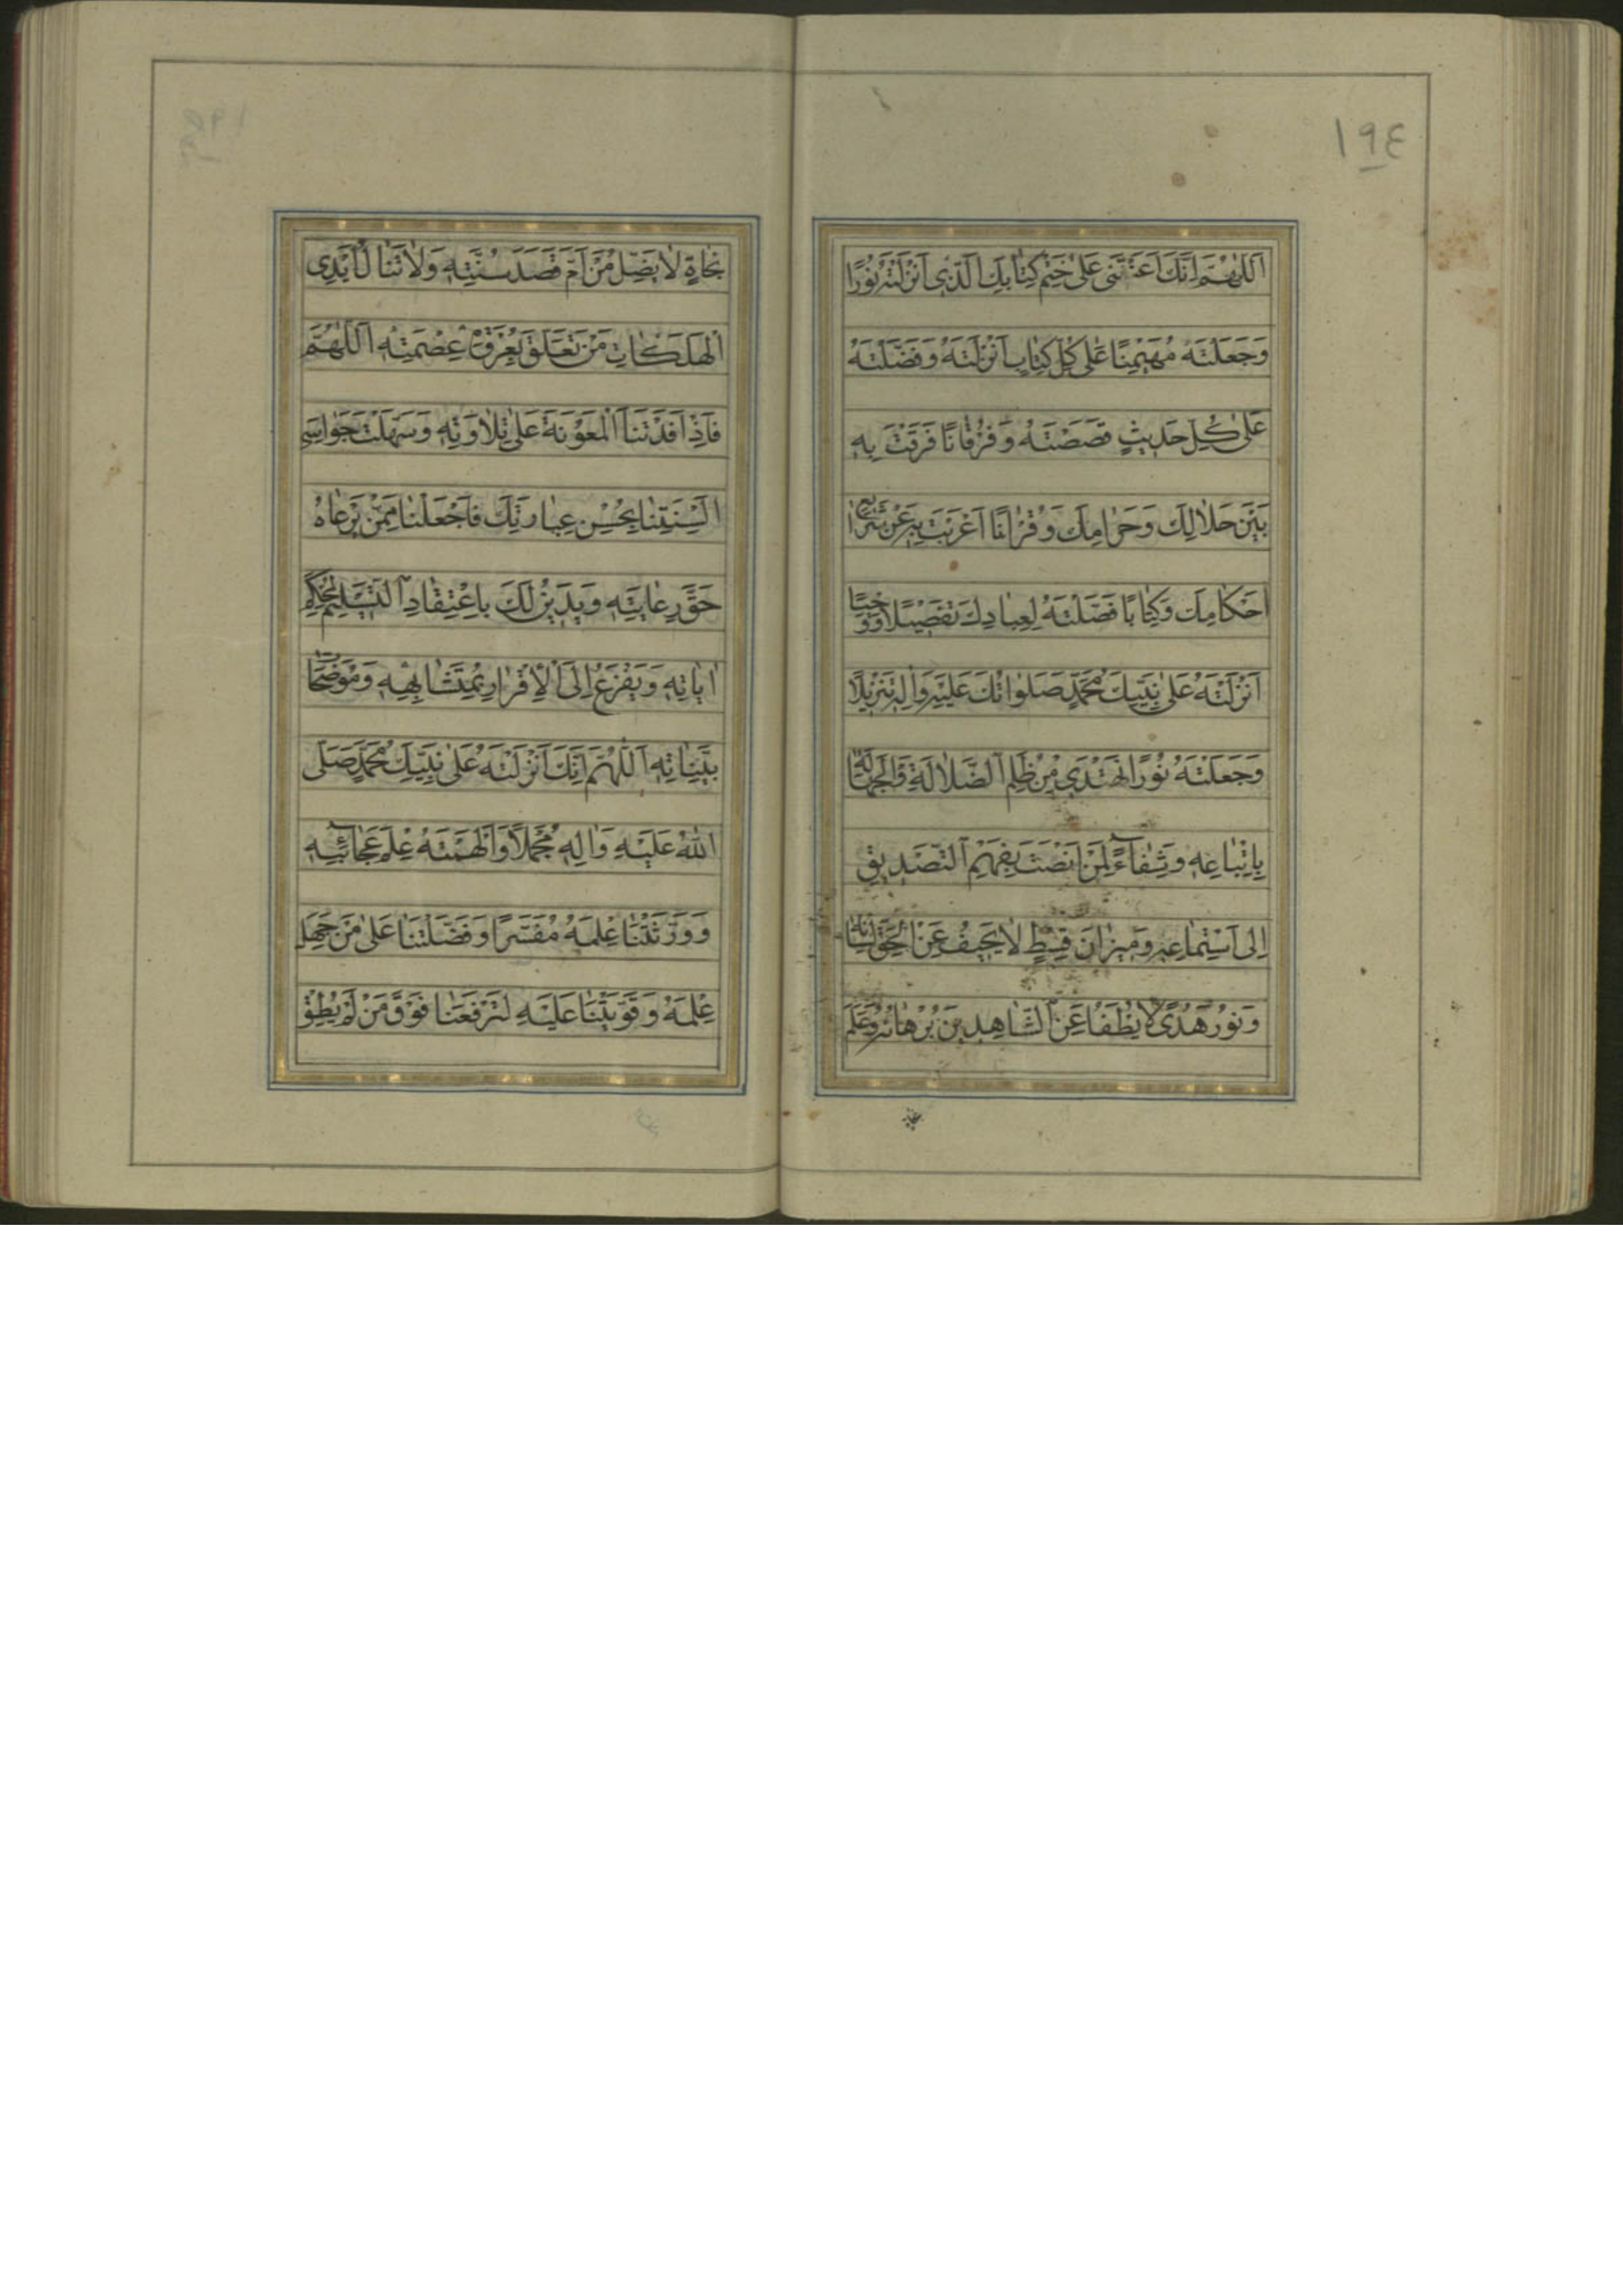 ١٩٤
اَللّٰهُمَّ اِنَّكَ اَعَنْتَنى عَلىٰ خَتْمِ كِتٰابِكَ الَّذى اَنْزَلْتَهُ نُورًا
وَجَعَلْتَهُ مُهَيْمِنًا عَلىٰ كُلِّ كِتٰابٍ اَنْزَلْتَهُ وَفَضَّلْتَهُ
عَلىٰ كُلِّ حَديثٍ قَصَصْتَهُ وَفُرْقٰانًا فَرَقْتَ بِهِ
بَيْنَ حَلالِكَ وَحَرٰامِكَ وَقُرْاٰنًا اَعْرَبْتَ بِهِ عَنْ شَرٰايِعِ
اَحْكٰامِكَ وَكِتٰابًا فَصَّلْتَهُ لِعِبٰادِكَ تَفْصيلًا وَوَحْيًا
اَنْزَلْتَهُ عَلىٰ نَبِيِّكَ مُحَمَّدٍ صَلَوٰاتُكَ عَلَيْهِ وَاٰلِهِ تَنْزيلًا
وَجَعَلْتَهُ نُورًا نَهْتَدى مِنْ ظُلَمِ الضَّلالَةِ وَالْجَهٰالَةِ
بِاتِّبٰاعِهِ وَشِفٰآءً لِمَنْ اَنْصَتَ بِفَهْمِ التَّصْديقِ
اِلىٰ اسْتِمٰاعِهِ وَميزٰانَ قِسْطٍ لا يَحيفُ عَنِ الْحَقِّ لِسٰانُهُ
وَنُورُ هُدًى لا يُطْفَاُ عَنِ الشّٰاهِدينَ بُرْهٰانُهُ وَعَلَمَ
نَجٰاةٍ لا يَضِلُّ مَنْ اَمَّ قَصْدَ سُنَّتِهِ وَلا تَنٰالُ اَيْدِى
الْهَلَكٰاتِ مَنْ تَعَلَّقَ بِعُرْوَةِ عِصْمَتِهِ اَللّٰهُمَّ
فَاِذْ اَفَدْتَنَا الْمَعُونَةَ عَلىٰ تِلاوَتِهِ وَسَهَّلْتَ جَوٰاسِىَ
اَلْسِنَتِنٰا بِحُسْنِ عِبٰارَتِكَ فَاجْعَلْنٰا مِمَّنْ يَرْعٰاهُ
حَقَّ رِعٰايَتِهِ وَيَدينُ لَكَ بِاعْتِقٰادِ التَّسْليمِ لِمُحْكَمِ
اٰيٰاتِهِ وَيَفْزَعُ اِلَى الْاِقْرٰارِ بِمُتَشٰابِهِهِ وَمُوضَحٰا
بَيِّنٰاتِهِ اَللّٰهُمَّ اِنَّكَ اَنْزَلْتَهُ عَلىٰ نَبِيِّكَ مُحَمَّدٍ صَلَّى
اللّٰهُ عَلَيْهِ وَاٰلِهِ مُجْمَلًا وَاَلْهَمْتَهُ عِلْمَ عَجٰائِبِهِ
وَوَرَّثْتَنٰا عِلْمَهُ مُفَسَّرًا وَفَضَّلْتَنٰا عَلىٰ مَنْ جَهِلَ
عِلْمَهُ وَقَوَّيْتَنٰا عَلَيْهِ لِتَرْفَعَنٰا فَوْقَ مَنْ لَمْ يُطِقْ